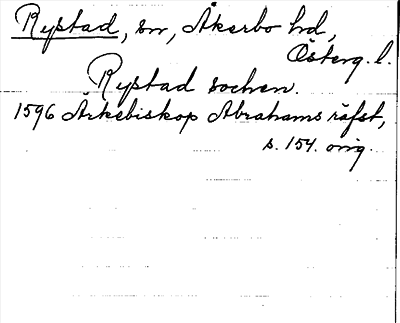 Rystad, sn, Åkerbo hd,
Österg. l.
Rystad sochen.
1596 Ärkebiskop Abrahams räfst,
s. 154. orig.